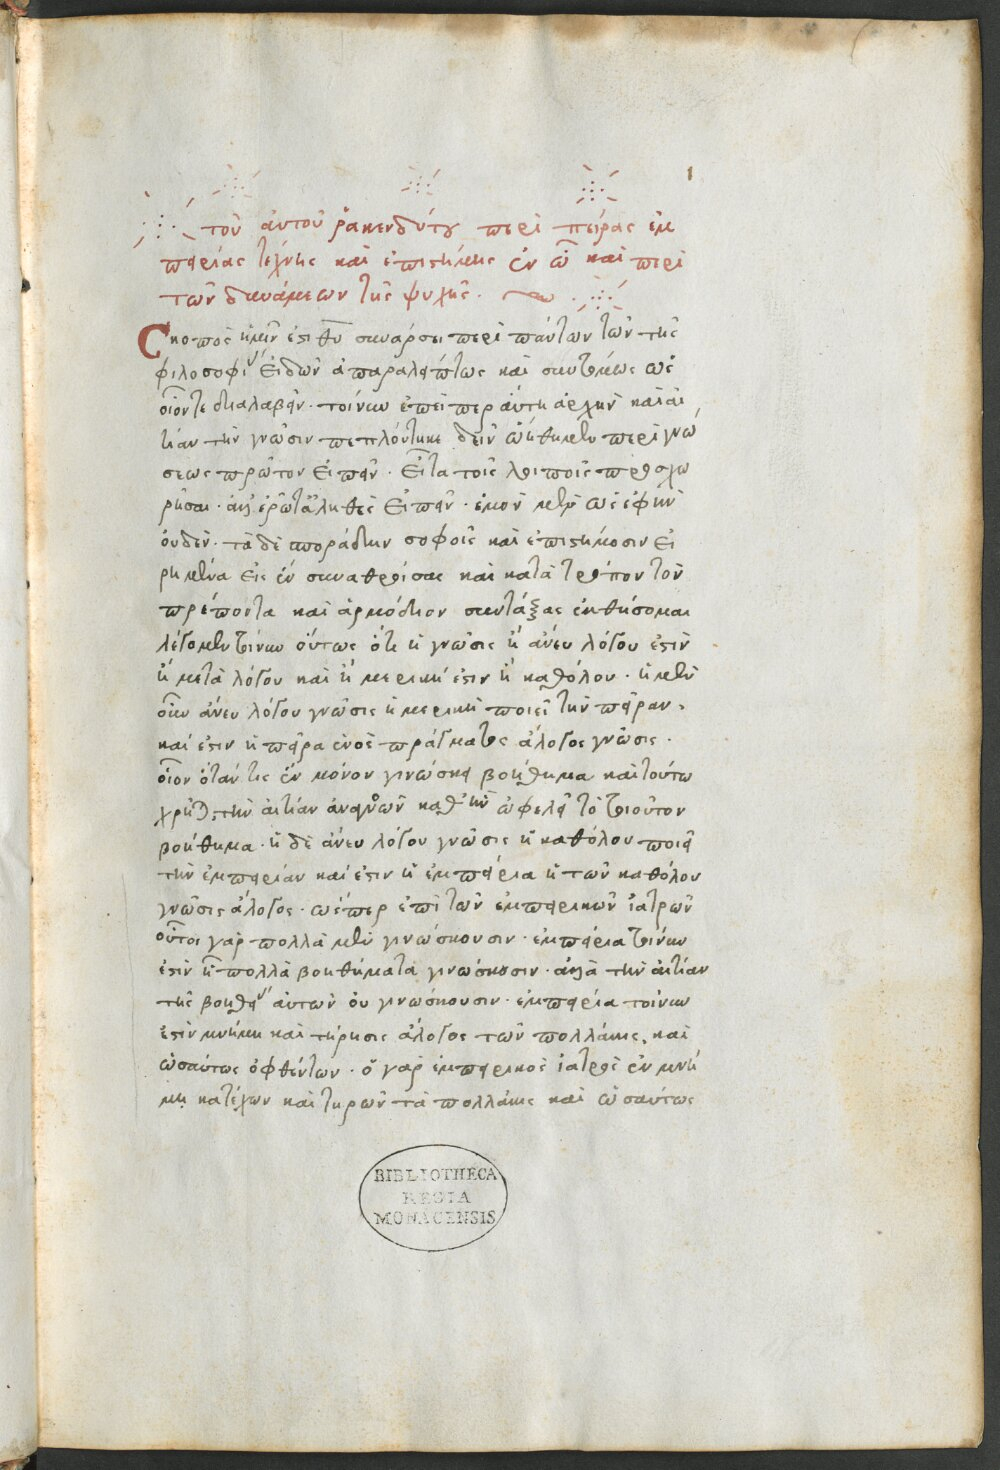 1
τοῦ αὐτοῦ ῥακενδύτου περὶ πείρας ἐμ
πειρίας τέχνης καὶ ἐπιστήμης ἐν ᾧ καὶ περὶ
τῶν δυνάμεων τῆς ψυχῆς.
Σκοπὸς ἡμῖν ἐστι θυ συνάρσει περὶ πάντων τῶν τῆς
φιλοσοφι εἰδῶν ἀπαραλείπτως καὶ συντόμως ὡς
οἷόντε διαλαβεῖν. τοίνυν ἐπείπερ αὕτη ἀρχὴν καὶ αἰ
τίαν τὴν γνῶσιν πεπλούτηκε δεῖν ᾠήθημεν περὶ γνώ
σεως πρῶτον εἰπεῖν. εἶτα τοῖς λοιποῖς προσχω
ρῆσαι. εἰπεῖν. ἐμὸν μὲν ὡς ἔφην
οὐδὲν. τὰ δὲ σποράδην σοφοῖς καὶ ἐπιστήμοσιν εἰ
ρημένα εἰς ἓν συναθροίσας καὶ κατὰ τρόπον τὸν
πρέποντα καὶ ἁρμόδιον συντάξας ἐκθήσομαι
λέγομεν τοίνυν οὕτως ὅτι ἡ γνῶσις ἢ ἄνευ λόγου ἐστὶν
ἢ μετὰ λόγου καὶ ἢ μερική ἐστιν ἢ καθόλου. ἡ μὲν
οὖν ἄνευ λόγου γνῶσις ἡ μερικὴ ποιεῖ τὴν πεῖραν.
καί ἐστιν ἡ πεῖρα ἑνὸς πράγματος ἄλογος γνῶσις.
οἷον ὅτάν τις ἓν μόνον γινώσκῃ βοήθημα καὶ τούτω
τὴν αἰτίαν ἀγνοῶν καθ' ἣν ὠφελεῖ τὸ τοιοῦτον
βοήθημα. ἡ δὲ ἄνευ λόγου γνῶσις ἡ καθόλου ποιεῖ
τὴν ἐμπειρίαν καί ἐστιν ἡ ἐμπειρία ἡ τῶν καθόλου
γνῶσις ἄλογος. ὥσπερ ἐπὶ τῶν ἐμπειρικῶν ἰατρῶν
οὗτοι γὰρ πολλὰ μὲν γινώσκουσιν. ἐμπειρία τοίνυν
ἐστὶν πολλὰ βοηθήματα γινώσκουσιν. ἀλλὰ τὴν αἰτίαν
τῆς βοηθει αὐτῶν οὐ γινώσκουσιν. ἐμπειρία τοίνυν
ἐστὶν μνήμη καὶ τήρησις ἄλογος τῶν πολλάκις, καὶ
ὡσαύτως ὀφθέντων. ὁ γὰρ ἐμπειρικὸς ἰατρὸς ἐν μνή
μῃ κατέχων καὶ τηρῶν τὰ πολλάκις καὶ ὡσαύτως
BIBLIOTHECA
REGIA
MONACENSIS